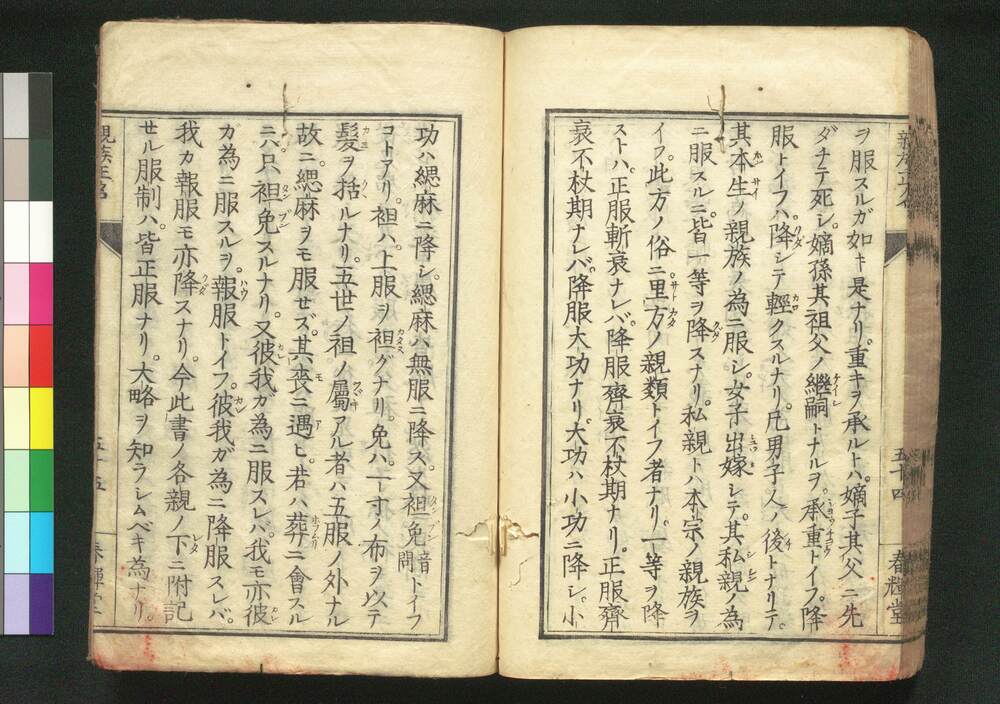 ヲ服スルガ如キ是ナリ。重キヲ承ルトハ、嫡子其父ニ先
ダチテ死シ。嫡孫其祖父ノ繼嗣トナルヲ。承重トイフ。降
服トイフハ、降シテ輕クスルナリ。凡男子人ノ後トナリテ。
其本生ノ親族ノ為ニ服シ。女子出嫁シテ。其私親ノ為
ニ服スルニ。皆一等ヲ降スナリ。私親トハ本宗ノ親族ヲ
イフ。此方ノ俗ニ里方ノ親類トイフ者ナリ。一等ヲ降
ストハ。正服斬衰ナレバ。降服齊衰不杖期ナリ。正服齊
衰不杖期ナレバ。降服大功ナリ。大功ハ小功ニ降シ。小
五十四
春輝堂
功ハ緦麻ニ降シ。緦麻ハ無服ニ降ス。又袒免音問トイフ
コトアリ。袒ハ。上服ヲ袒グナリ。免ハ。一寸ノ布ヲ以テ
髮ヲ括ルナリ。五世ノ祖ノ屬アル者ハ五服ノ外ナル
故ニ。緦麻ヲモ服セズ。其喪ニ遇ヒ。若ハ葬ニ會スル
ニハ。只袒免スルナリ。又彼我ガ為ニ服スレバ。我モ亦彼
ガ為ニ服スルヲ。報服トイフ。彼我ガ為ニ降服スレバ。
我カ報服モ亦降スナリ。今此書ノ各親ノ下ニ附記
セル服制ハ。皆正服ナリ。大略ヲ知ラシムベキ為ナリ。
親族正名
五十五
春輝堂